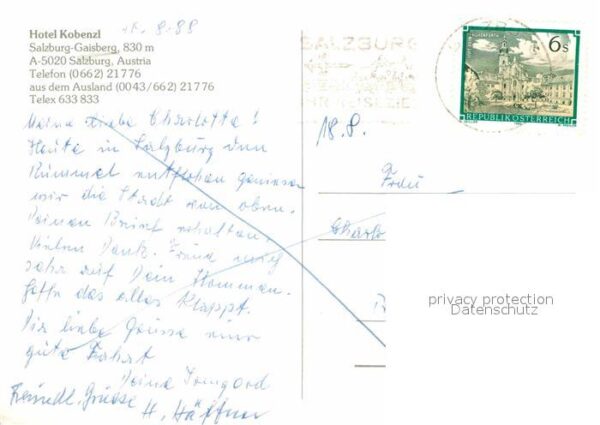 18.8.88
Hotel Kobenzl
Salzburg-Gaisberg, 830 m
A-5020 Salzburg, Austria
Telefon (0662) 21776
aus dem Ausland (0043/662) 21776
Telex 633 833
Meine liebe Charlotte!
Heute in Salzburg dem
Rummel entflohen geniessen
wir die Stadt von oben.
Deinen Brief erhalten,
Vielen Dank. Freue mich
sehr auf Dein Kommen.
Hoffe das alles klappt.
Dir liebe Grüsse und
gute Fahrt
Deine Irmgard
Freundl. Grüsse
H. Häffner
SALZBURG
6 S
REPUBLIK ÖSTERREICH
18.8.
Frau
Charlo
privacy protection
Datenschutz